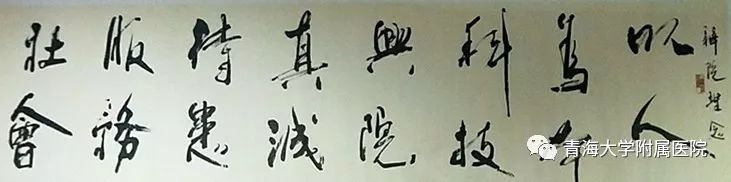 辦院理念
以人
為本
科技
興院
真誠
待患
服務
社會
青海大学附属医院